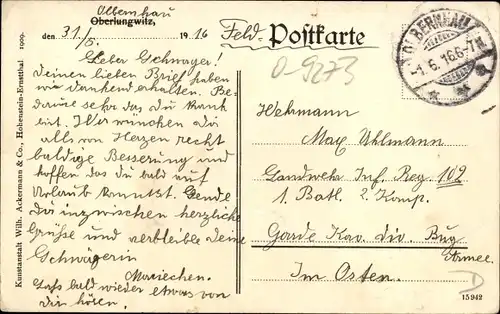 Olbernhau
Oberlungwitz,
den 31/5. 1916
Feld-Postkarte
OLBERNHAU
-1.6.16.6-7N.
0-9273
Lieber Schwager!
Deinen lieben Brief haben
wir dankend erhalten. Be-
daure sehr das du krank
bist. Wir wünschen dir
alle von Herzen recht
baldige Besserung und
hoffen das du bald auf
Urlaub kannst. Sende
Dir inzwischen herzliche
Grüsse und verbleibe deine
Schwägerin
Mariechen.
Lass bald wieder etwas von
dir hören.
Wehrmann
Max Uhlmann
Landwehr Inf. Reg. 102
1. Batl. 2 Komp.
Garde Kav. Div. Bug
Armee.
Im Osten.
D
15942
Kunstanstalt Wilh. Ackermann & Co., Hohenstein-Ernstthal 1909.